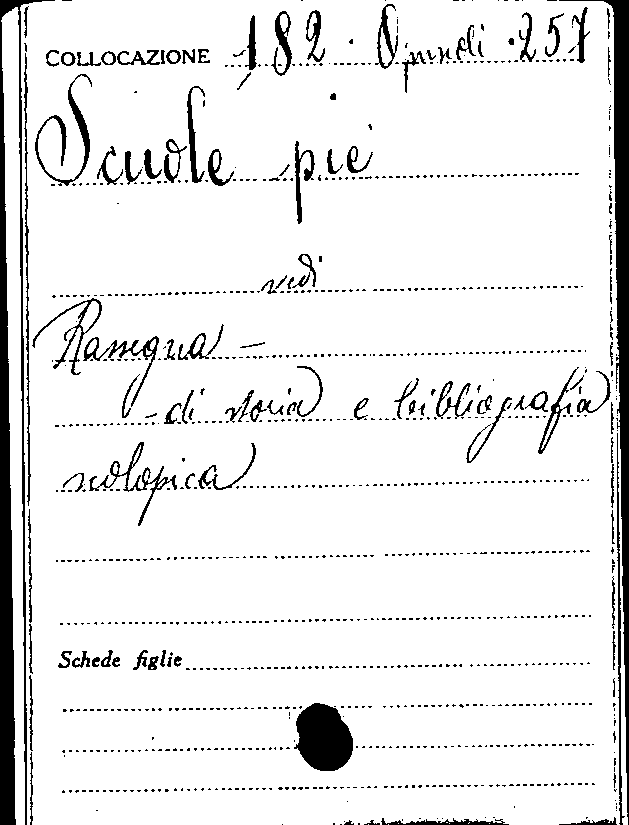 COLLOCAZIONE 182 · Opuscoli · 257
Scuole pie
vedi
Rassegna —
- di storia e bibliografia
scolopica
Schede figlie